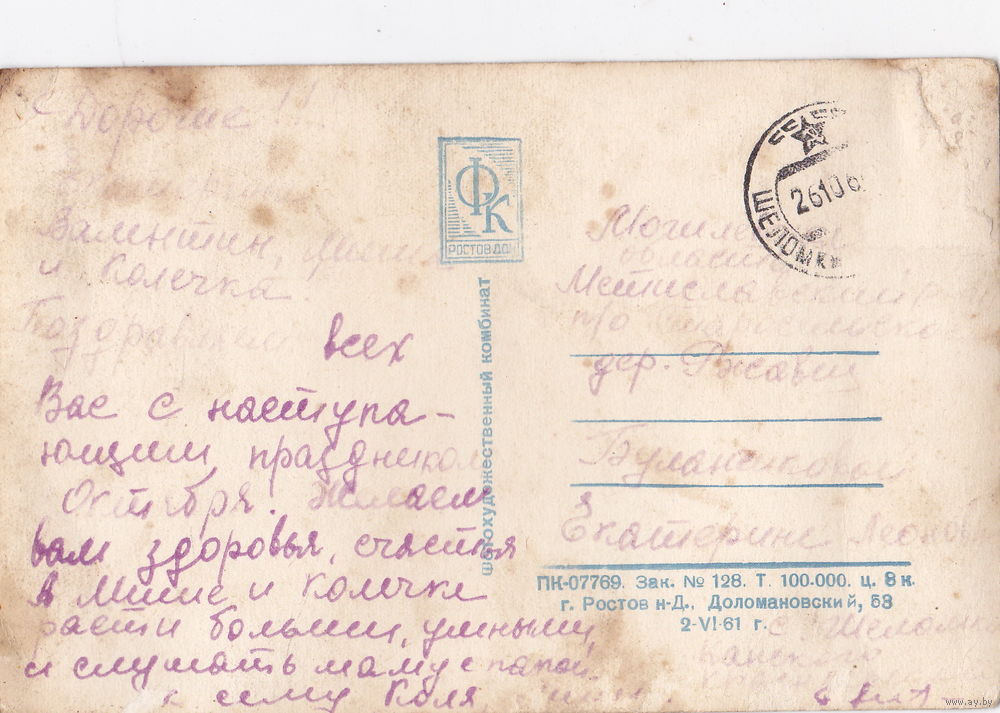 Дорогие
Валентин Миша
и Колечка.
Поздравляем всех
Вас с наступа-
ющим праздником
Октября! Желаем
вам здоровья, счастья
а Мише и Колечке
расти большими, умными,
и слушать маму с папой.
к сему Коля
ФК
РОСТОВ-ДОН
Фотохудожественный комбинат
26 10 6
ШЕЛОМКИ
Мстиславский
п/о
дер. Ржавец
Екатерине Леоновне
ПК-07769. Зак. № 128. Т. 100.000. ц. 8 к.
г. Ростов н-Д., Доломановский, 53
2-VI-61 г.
с.
www.ay.by